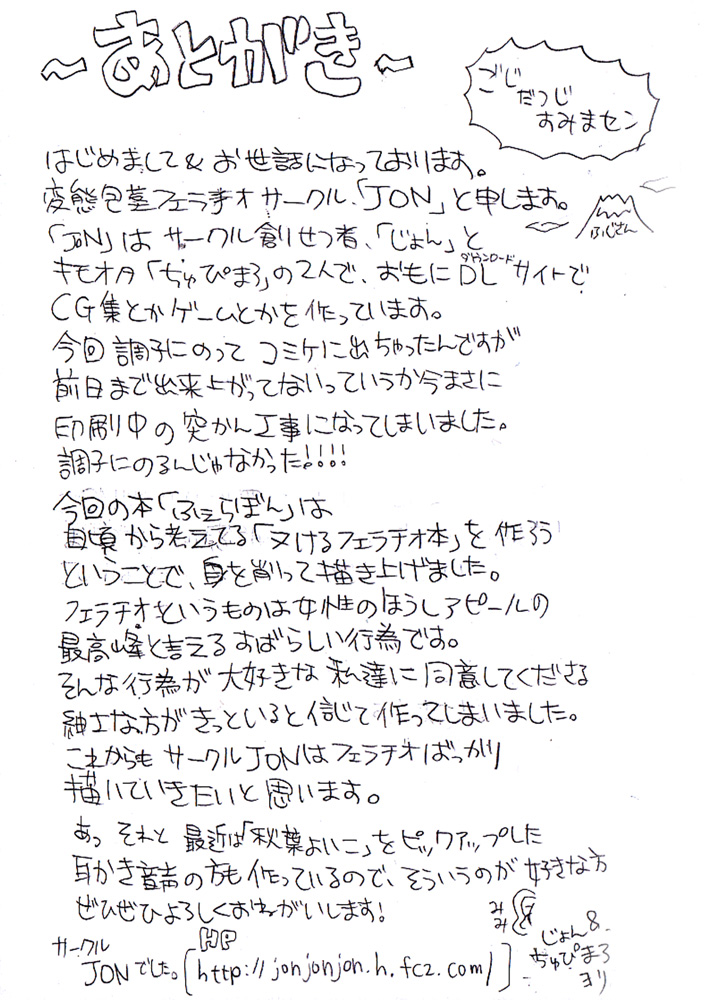 ～あとがき～
ごじ
だつじ
すみまセン
はじめまして& お世話になっております。
変態包茎フェラチオサークル、「JON」と申します。
ふじさん
「JON」はサークル創りせつ者、「じょん」と
ダウンロード
キモオタ「ぢゅぴまろ」の2人で、おもにDLサイトで
CG集とかゲームとかを作っています。
今回調子にのってコミケに出ちゃったんですが
前日まで出来上がってないっていうか今まさに
印刷中の突かん工事になってしまいました。
調子にのるんじゃなかった!!!!
今回の本「ふぇらぼん」は
日頃から考えてる「ヌけるフェラチオ本」を作ろう
ということで、身を削って描き上げました。
フェラチオというものは女性のほうしアピールの
最高峰と言えるすばらしい行為です。
そんな行為が大好きな私達に同意してくださる
紳士な方がきっといると信じて作ってしまいました。
これからもサークルJONはフェラチオばっかり
描いていきたいと思います。
あっ それと 最近は「秋葉よいこ」をピックアップした
耳かき音声の方も作っているので、そういうのが好きな方
ぜひぜひよろしくおねがいします!
みみ
サークル
JONでした。
HP
[http://jonjonjon.h.fc2.com/]
じょん&
ぢゅぴまろ
ヨリ